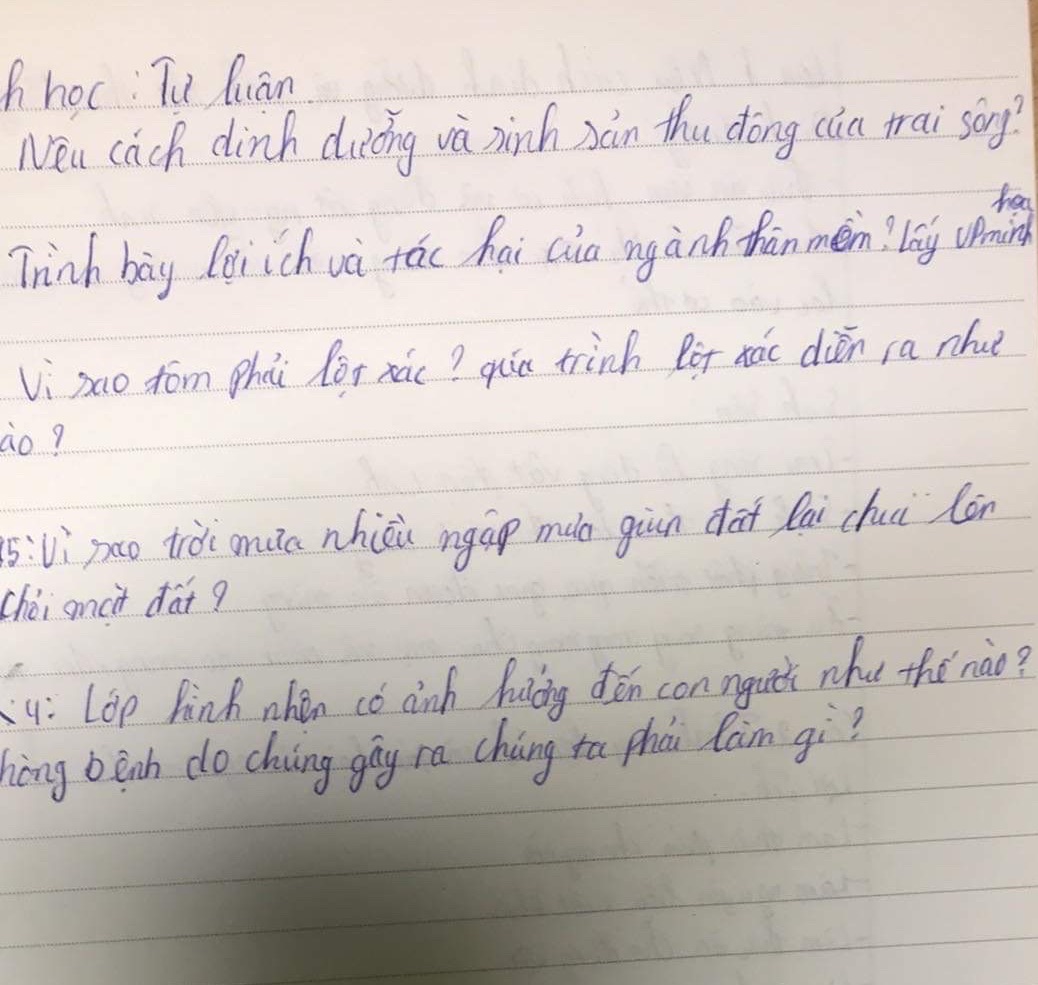 h học: Tự luận
Nêu cách dinh dưỡng và sinh sản thụ động của trai sông?
học
Trình bày lợi ích và tác hại của ngành thân mềm? Lấy VD minh
Vì sao tôm phải lột xác? quá trình lột xác diễn ra như
ào?
5: Vì sao trời mưa nhiều ngập mưa giun đất lại chui lên
khỏi mặt đất?
4: Lớp hình nhện có ảnh hưởng đến con người như thế nào?
hòng bệnh do chúng gây ra chúng ta phải làm gì?